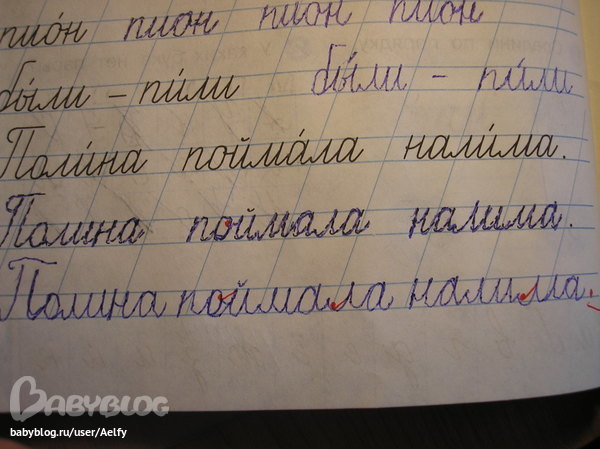 пио́н пион пио́н пион
бы́ли – пи́ли бы́ли – пи́ли
Поли́на пойма́ла нали́ма.
Полина поймала налима.
Полина поймала налима.
BABYBLOG
babyblog.ru/user/Aelfy